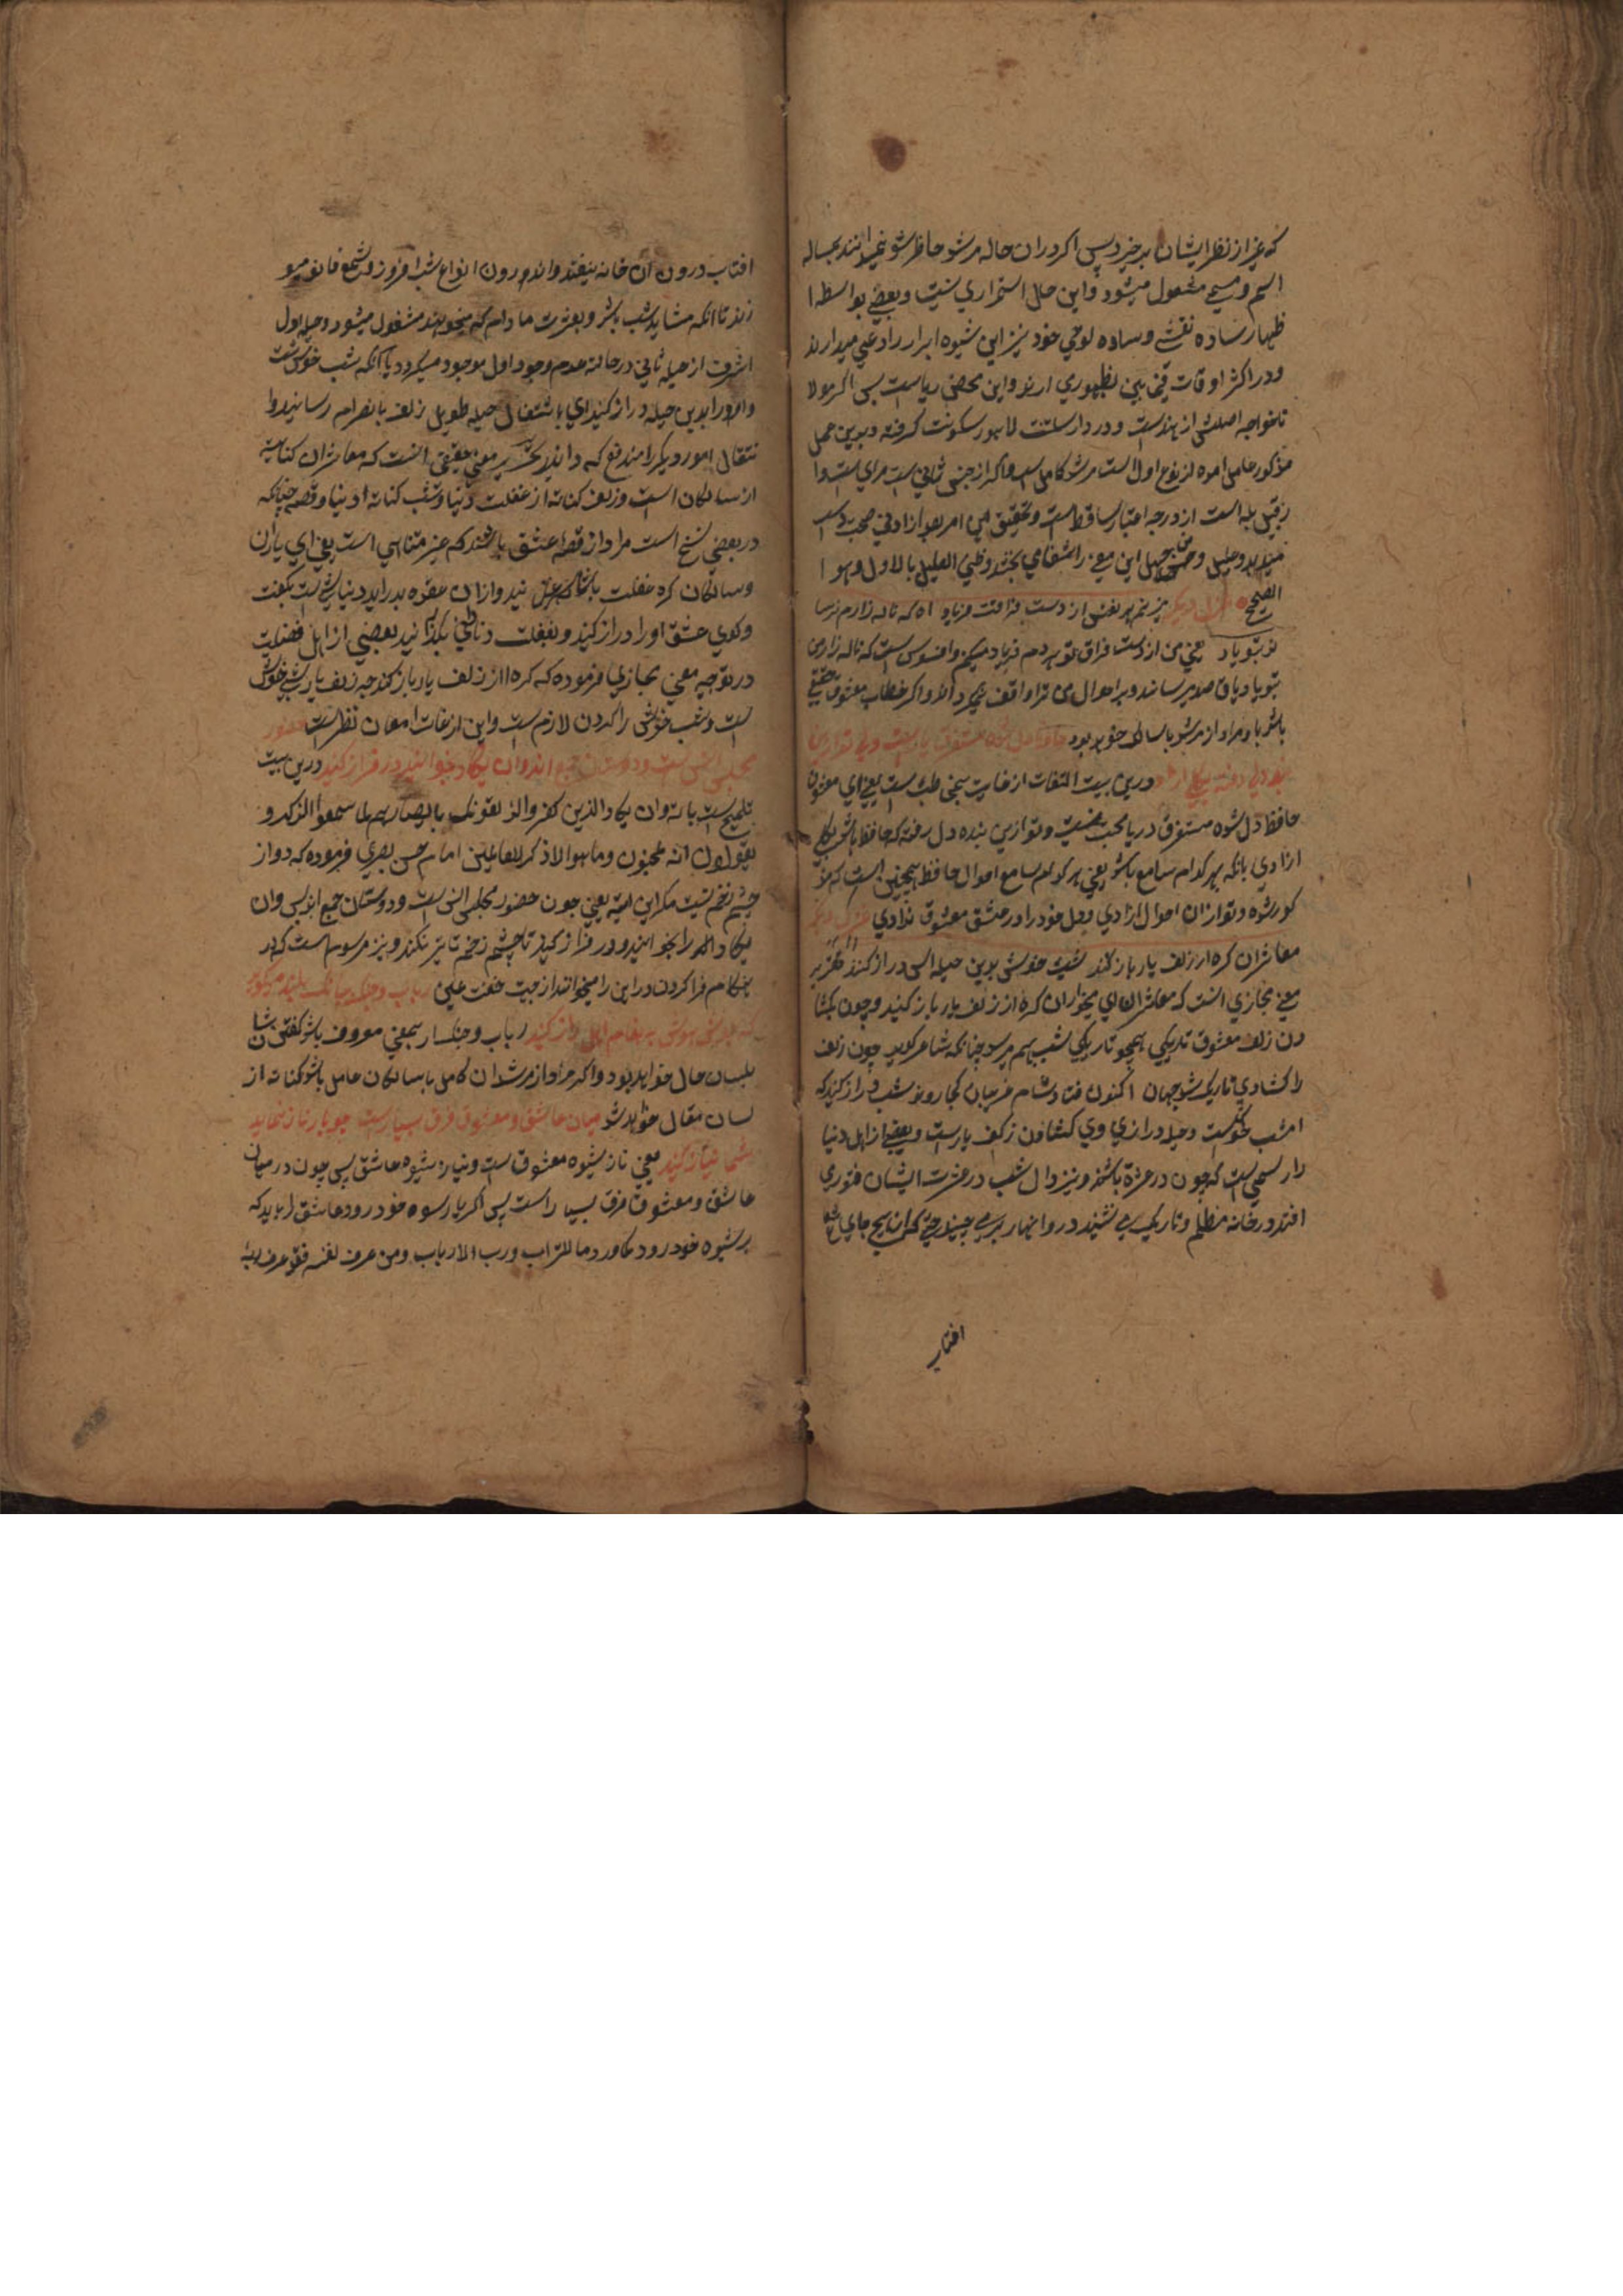 که غیر از نظر ایشان بر خیزد پس اکر دران حاله مرشد حاظر شود
اسم و مسمی مشغول میشود و این حال استمراری نیست و بعضی بواسطه ا
ظهار ساده نقشی و ساده لوحی خود نیز این شیوه ابرار را دعی میدارند
و در اکثر اوقات بظهوری ارند و این محض ریاست پس اکر مولا
ناخواجه اصلش از هندست و در دار سلطنت لاهور سکونت کرفته و بدین عمل
مذکور عامل امده از نوع اول است مرشد کامل است و اکر از جنس ثانی است مرای است وا
ز درجه اعتبار ساقط است و تحقیق این امر بعد از ادنی صحبت دست
میدهد و این معنی را شفا می بخشد و ظن العلیل بالاول و هو ا
لصحیح غزل دیکر از دست فراقت فریاد اه که ناله زارم نرسا
ند بتو باد یعنی من از دست فراق تو هر دم فریاد میکنم و افسوس است که ناله زار من
بتو باد باق صد بر ساند و بر احوال من ترا واقف و اکر خطاب معشوق حقیقی
باشد باد مراد از مرشد با سالک خواهد بود حافظ دل شده مستغرق
درین بیت التفات از غایب است یعنی ای معشوق
حافظ دل شده مستغرق در یا محبت و تو ازین بنده دل رفته که حافظ باشد بکلی
ازادی بانکه هر کدام سامع باشد یعنی هر کدام سامع احوال حافظ همچنین است که
کور شده و تو ازان احوال ازادی و دل خود را در عشق معشوق ندادی غزل دیکر
معاشران کره از زلف یار باز کنند شبی خوشست بدین حیله اش دراز کنند
معنی مجازی انست که معاشران ای میخواران کره از زلف یار باز کنید و چون کشا
دن زلف معشوق تاریکی همچو تاریکی شب بهم میرسد چنانکه شاعر کوید چون زلف
را کشادی تاریک شد جهان اکنون فتاد شام غریبان کجا روند شب دراز کنید که
امشب خوشست و حیله درازی وی کشادن زلف یارست و بعضی از اهل دنیا
را رسمی است که چون در عشرة باشند و نیز زوال شب در عشرت ایشان فتوری
افتد در خانه مظلم و تاریک می نشینند در و انهار چیند حتی که از هیچ جای
افتاب
افتاب درون ان خانه نیفتد و اندرون انواع شب افروز و شمع فانوس میسو
زند تا انکه مشابه شب باشد و بعشرت مادام که میخواهند مشغول میشوند و حیله اول
اشرف از حیله ثانی در حالت عدم وجود اول موجود میکردد یا انکه شب خوش است
و اورا بدین حیله دراز کنید ای باشتغال حیله طویل زلف بانصرام رسانید و ا
نتقال امور دیکر را مندفع که دانید معنی حقیقی انست که معاشران کنایه
از سالکان است و زلف کنایه از غفلت دنیا و شب کنایه از دنیا و قصه چنانکه
در بعضی نسخ است مراد از قصه عشق باشند که غیر متناهی است یعنی ای یاران
و سالکان کره غفلت باز کنید و از ان عقده بدر اید دنیا شبی است
و کوی عشق اورا دراز کنید و بغفلت دنیا نکذرانید بعضی از اهل فضلت
در توجیه معنی مجازی فرموده که کره را از زلف یار باز کنید چه زلف یار شب خوش
است و شب خوش را کردن لازم است و این از غایت امعان نظر است حضور
مجلس انس است و دوستان جمع اند وان یکاد بخوانید و در فراز کنید درین بیت
تلمیح است بایه وان یکاد الذین کفروا لیزلقونک بابصارهم لما سمعوا الذکر و
یقولون انه لمجنون و ما هو الا ذکر للعالمین امام حسن بصری فرموده که دوا از
چشم زخم نیست مکر این ایه یعنی چون حضور مجلس انس است و دوستان جمع اند پس وان
یکاد الخ را بخوانید و در فراز کنید تا چشم زخم تاثیر نکند و نیز مرسوم است که در
هنکام فرا کردن در این را میخوانند از جهت خفت علی رباب و چنک ببانک بلند میکوید
که کوش هوش به پیغام اهل راز کنید رباب و چنک ار بمعنی معروف باشد کفتن شان
بلسان حال خواهد بود و اکر مراد از مرشدان کامل باسالکان عامل باشد کنایه از
لسان مقال خواهد شد میان عاشق و معشوق فرق بسیارست چو یار ناز نماید
شما نیاز کنید یعنی ناز شیوه معشوق است و نیاز شیوه عاشق پس چون در میان
عاشق و معشوق فرق بسیار است پس اکر یار بسوه خود رود عاشق را باید که
بر شیوه خود رود کما ورد ما للتراب و رب الارباب و من عرف نفسه فقد عرف ربه